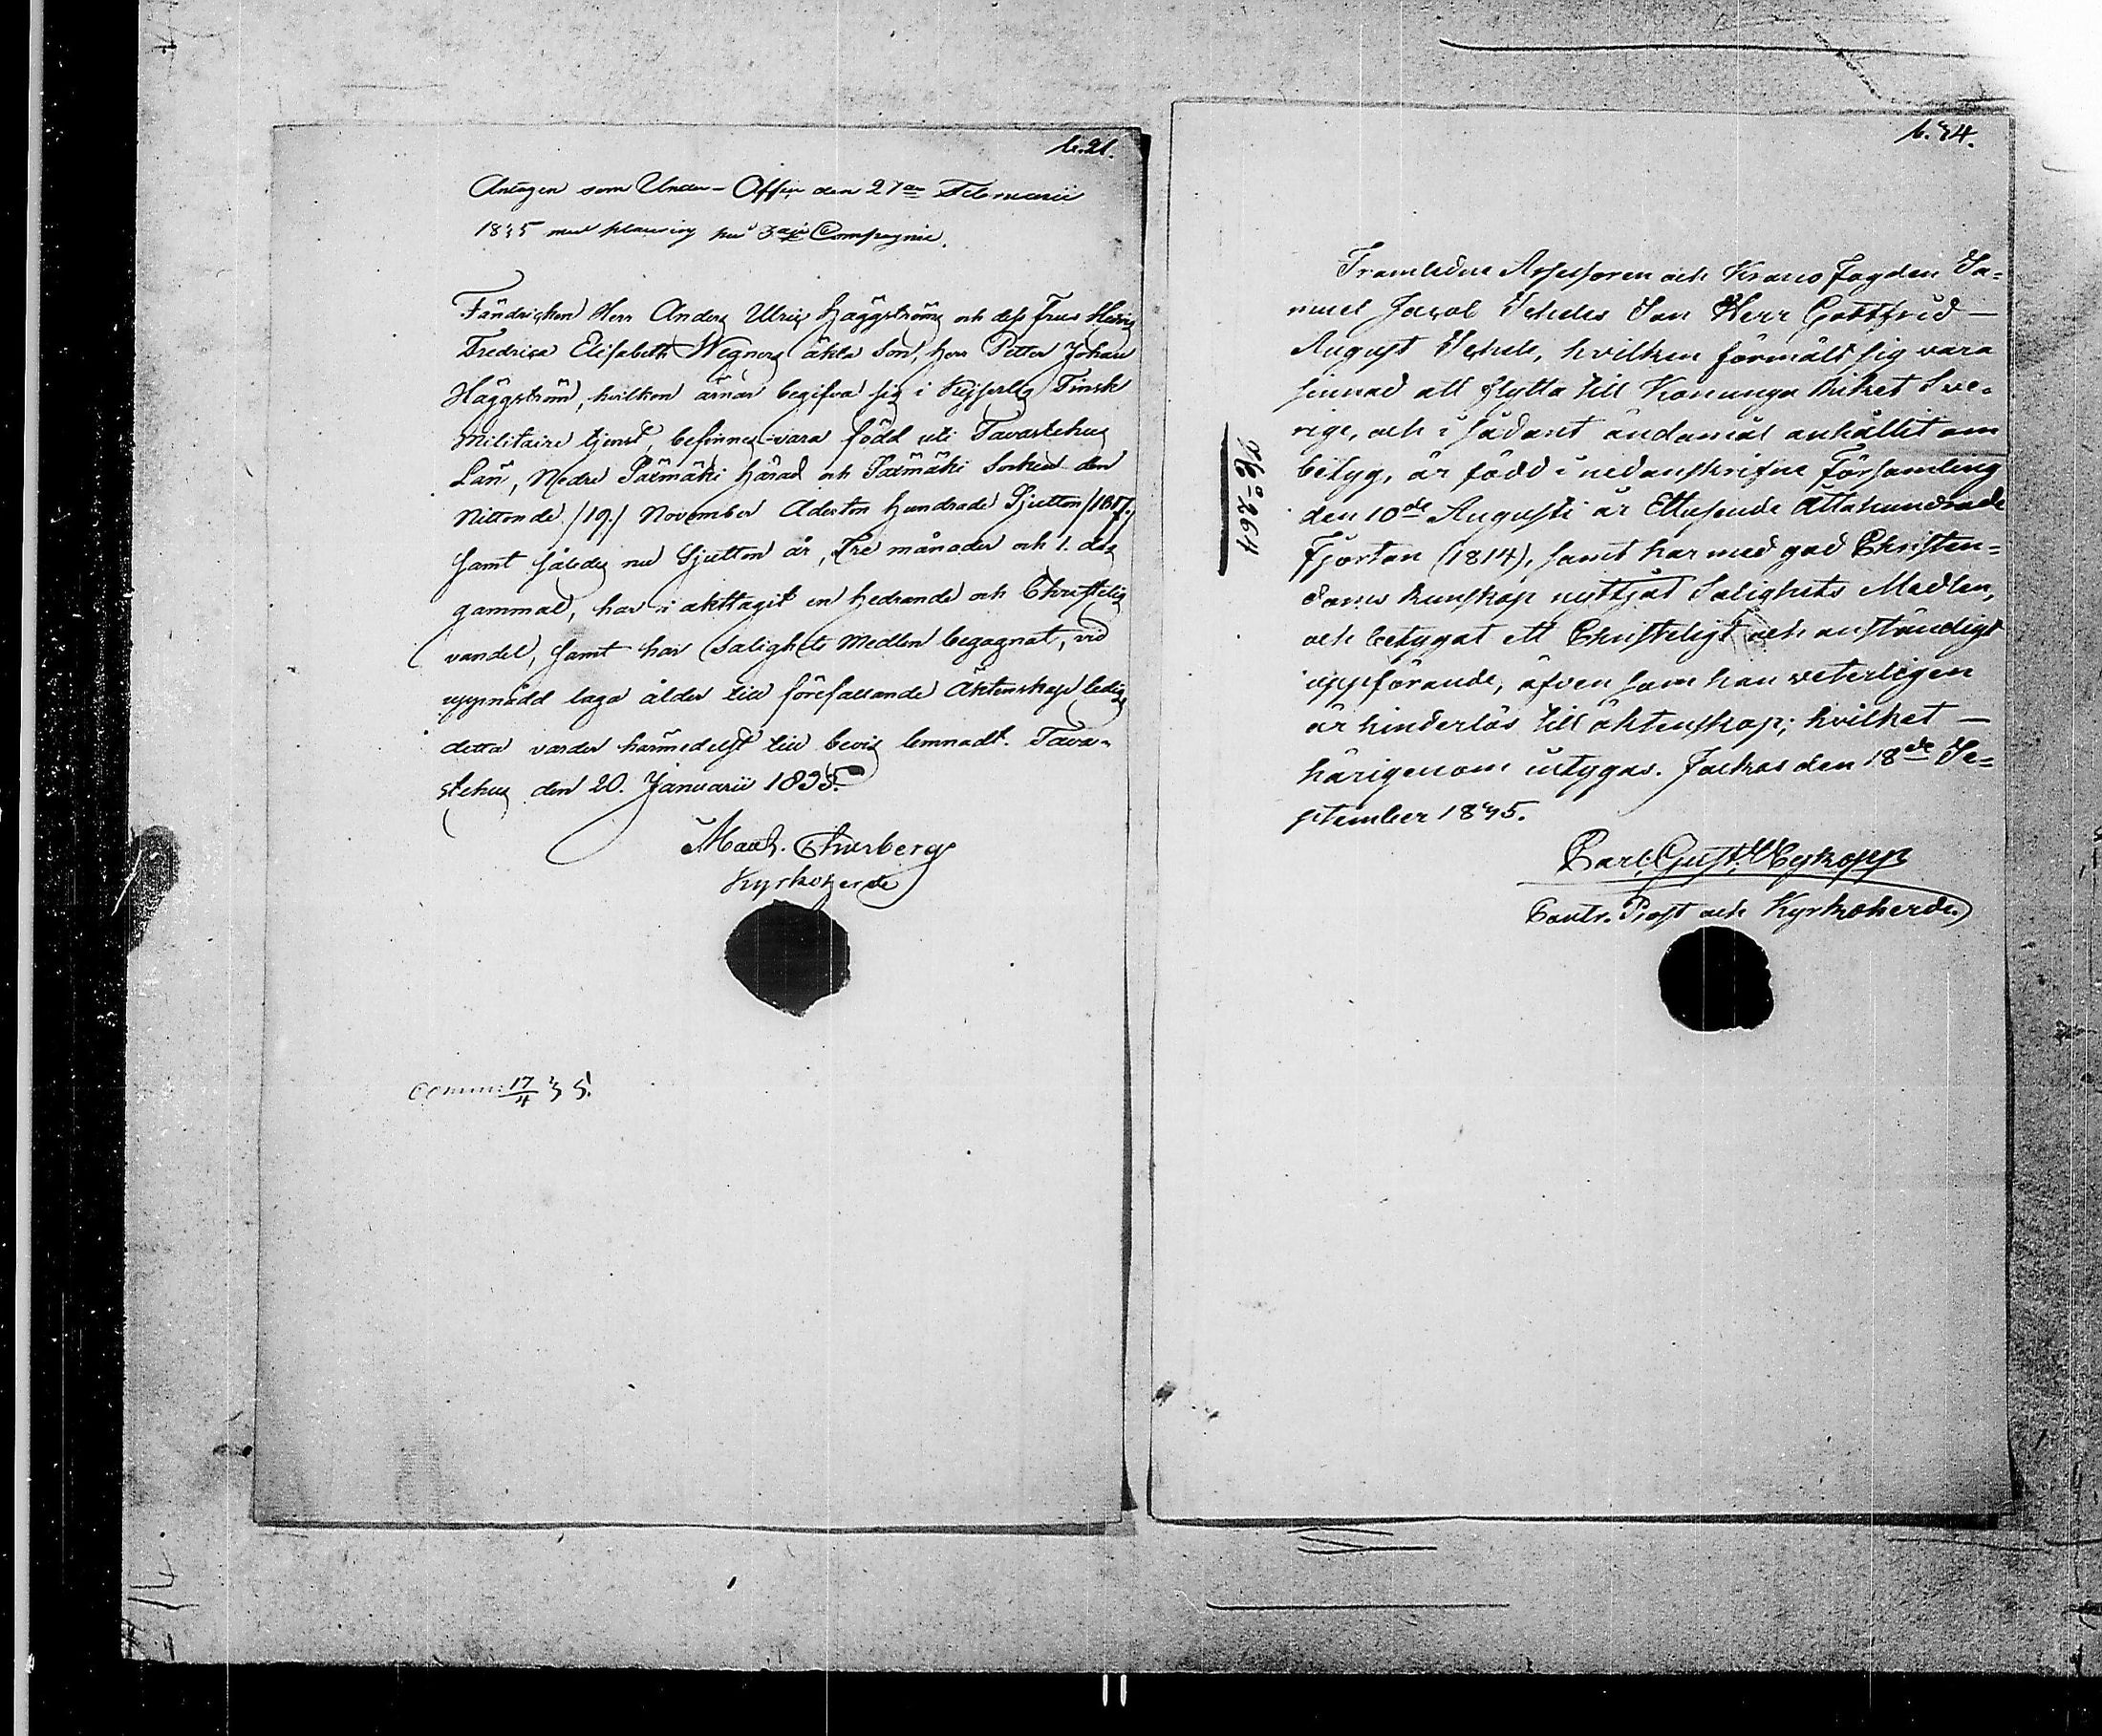 b.21.
Antagen som Under-Officer den 27de Februarii
1835 med placering på 3dje Compagnie.
Fändricken Herr Anders Ulric Häggströms och dess Frus Hedvig
Fredrica Elisabeth Wegners äkta Son, Herr Petter Johan
Häggström, hvilken ärnar begifva sig i Kejserlig Finsk
Militaire tjenst, befinnes vara född uti Tavastehus
Län, Nedre Säxmäki härad och Säxmäki Socken den
Nittonde /19/ November Aderton hundrade Sjutton /1817/,
samt således nu Sjutton år, Tre månader och 1. dag
gammal, har i akttagit en hedrande och Christelig
vandel, samt har Salighets Medlen begagnat, vid
uppnådd laga ålder till förefallande Äktenskap ledig,
detta varder härmedelst till bevis lemnadt. Tava-
stehus den 20. Januarii 1835.
Kyrkoherde
17/4 35.
b.34.
Framledne Assessoren och Krono Fogden Sa-
muel Jacob Son Herr Gottfrid
August hvilken förmält sig vara
sinnad att flytta till Konunga Riket Sve-
rige, och i sådant ändamål anhållit om
betyg, är född i nedanskrifne Församling
den 10de Augusti år Ettusende Åttahundrade
Fjorton (1814), samt har med god Christen-
doms kunskap nyttjat Salighets Medlen,
och betygat ett Christeligt och anständigt
uppförande, äfven som han veterligen
är hinderlös till äktenskap; hvilket
härigenom intygas. Jockas den 18de Se-
ptember 1835.
Carl Gust. Weykopp
Contr. Prost och Kyrkoherde.